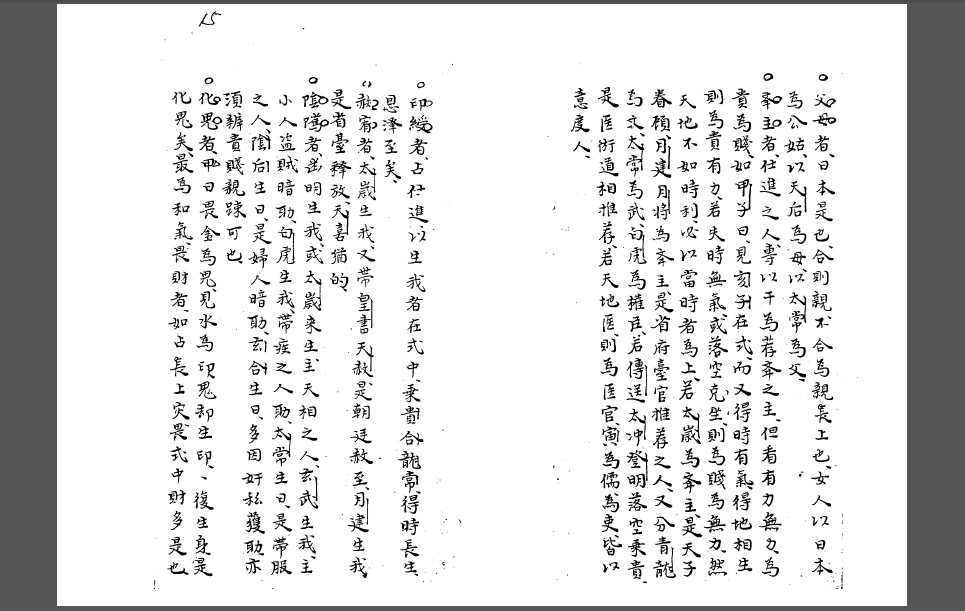 15
○父母者、日本是也、合則親、不合為親長上也、女人以日本
為公姑、以天后為母、以太常為父、
○舉主者、仕進之人、專以干為荐舉之主、但看有力無力、為
貴為賤、如甲子日、見亥子在式、而又得時有氣、得地相生
則為貴有力、若失時無氣、或落空克坐、則為賤為無力、然
天地不如時利、必以當時者為上、若太歲為舉主、是天子
眷顧、月建月將為舉主、是省府臺官推荐之人、又分青龍
為文、太常為武、白虎為權臣、若傳送太冲登明落空乘貴、
是医術道相推荐、若天地医、則為医官、寅為儒為吏、皆以
意度人、
○印綬者、占仕進、以生我者在式中、乘貴合龍常、得時長生、
恩澤至矣、
○赦宥者、太歲生我、又帶皇書天赦、是朝廷赦至、月建生我、
是省臺釋放、天喜猶的、
○陰隲者、岀明生我、或太歲来生、主天相之人、玄武生我、主
小人盜賊暗助、白虎生我、帶疾之人助、太常生日、是帶服
之人、陰后生日、是婦人暗助、玄合生日、多因奸私獲助、亦
須辨貴賤親踈可也、
○化鬼者、甲日畏金為鬼、見水為印、鬼却生印、丶復生身、是
化鬼矣、最為和氣、畏財者、如占長上灾、畏式中財多是也、